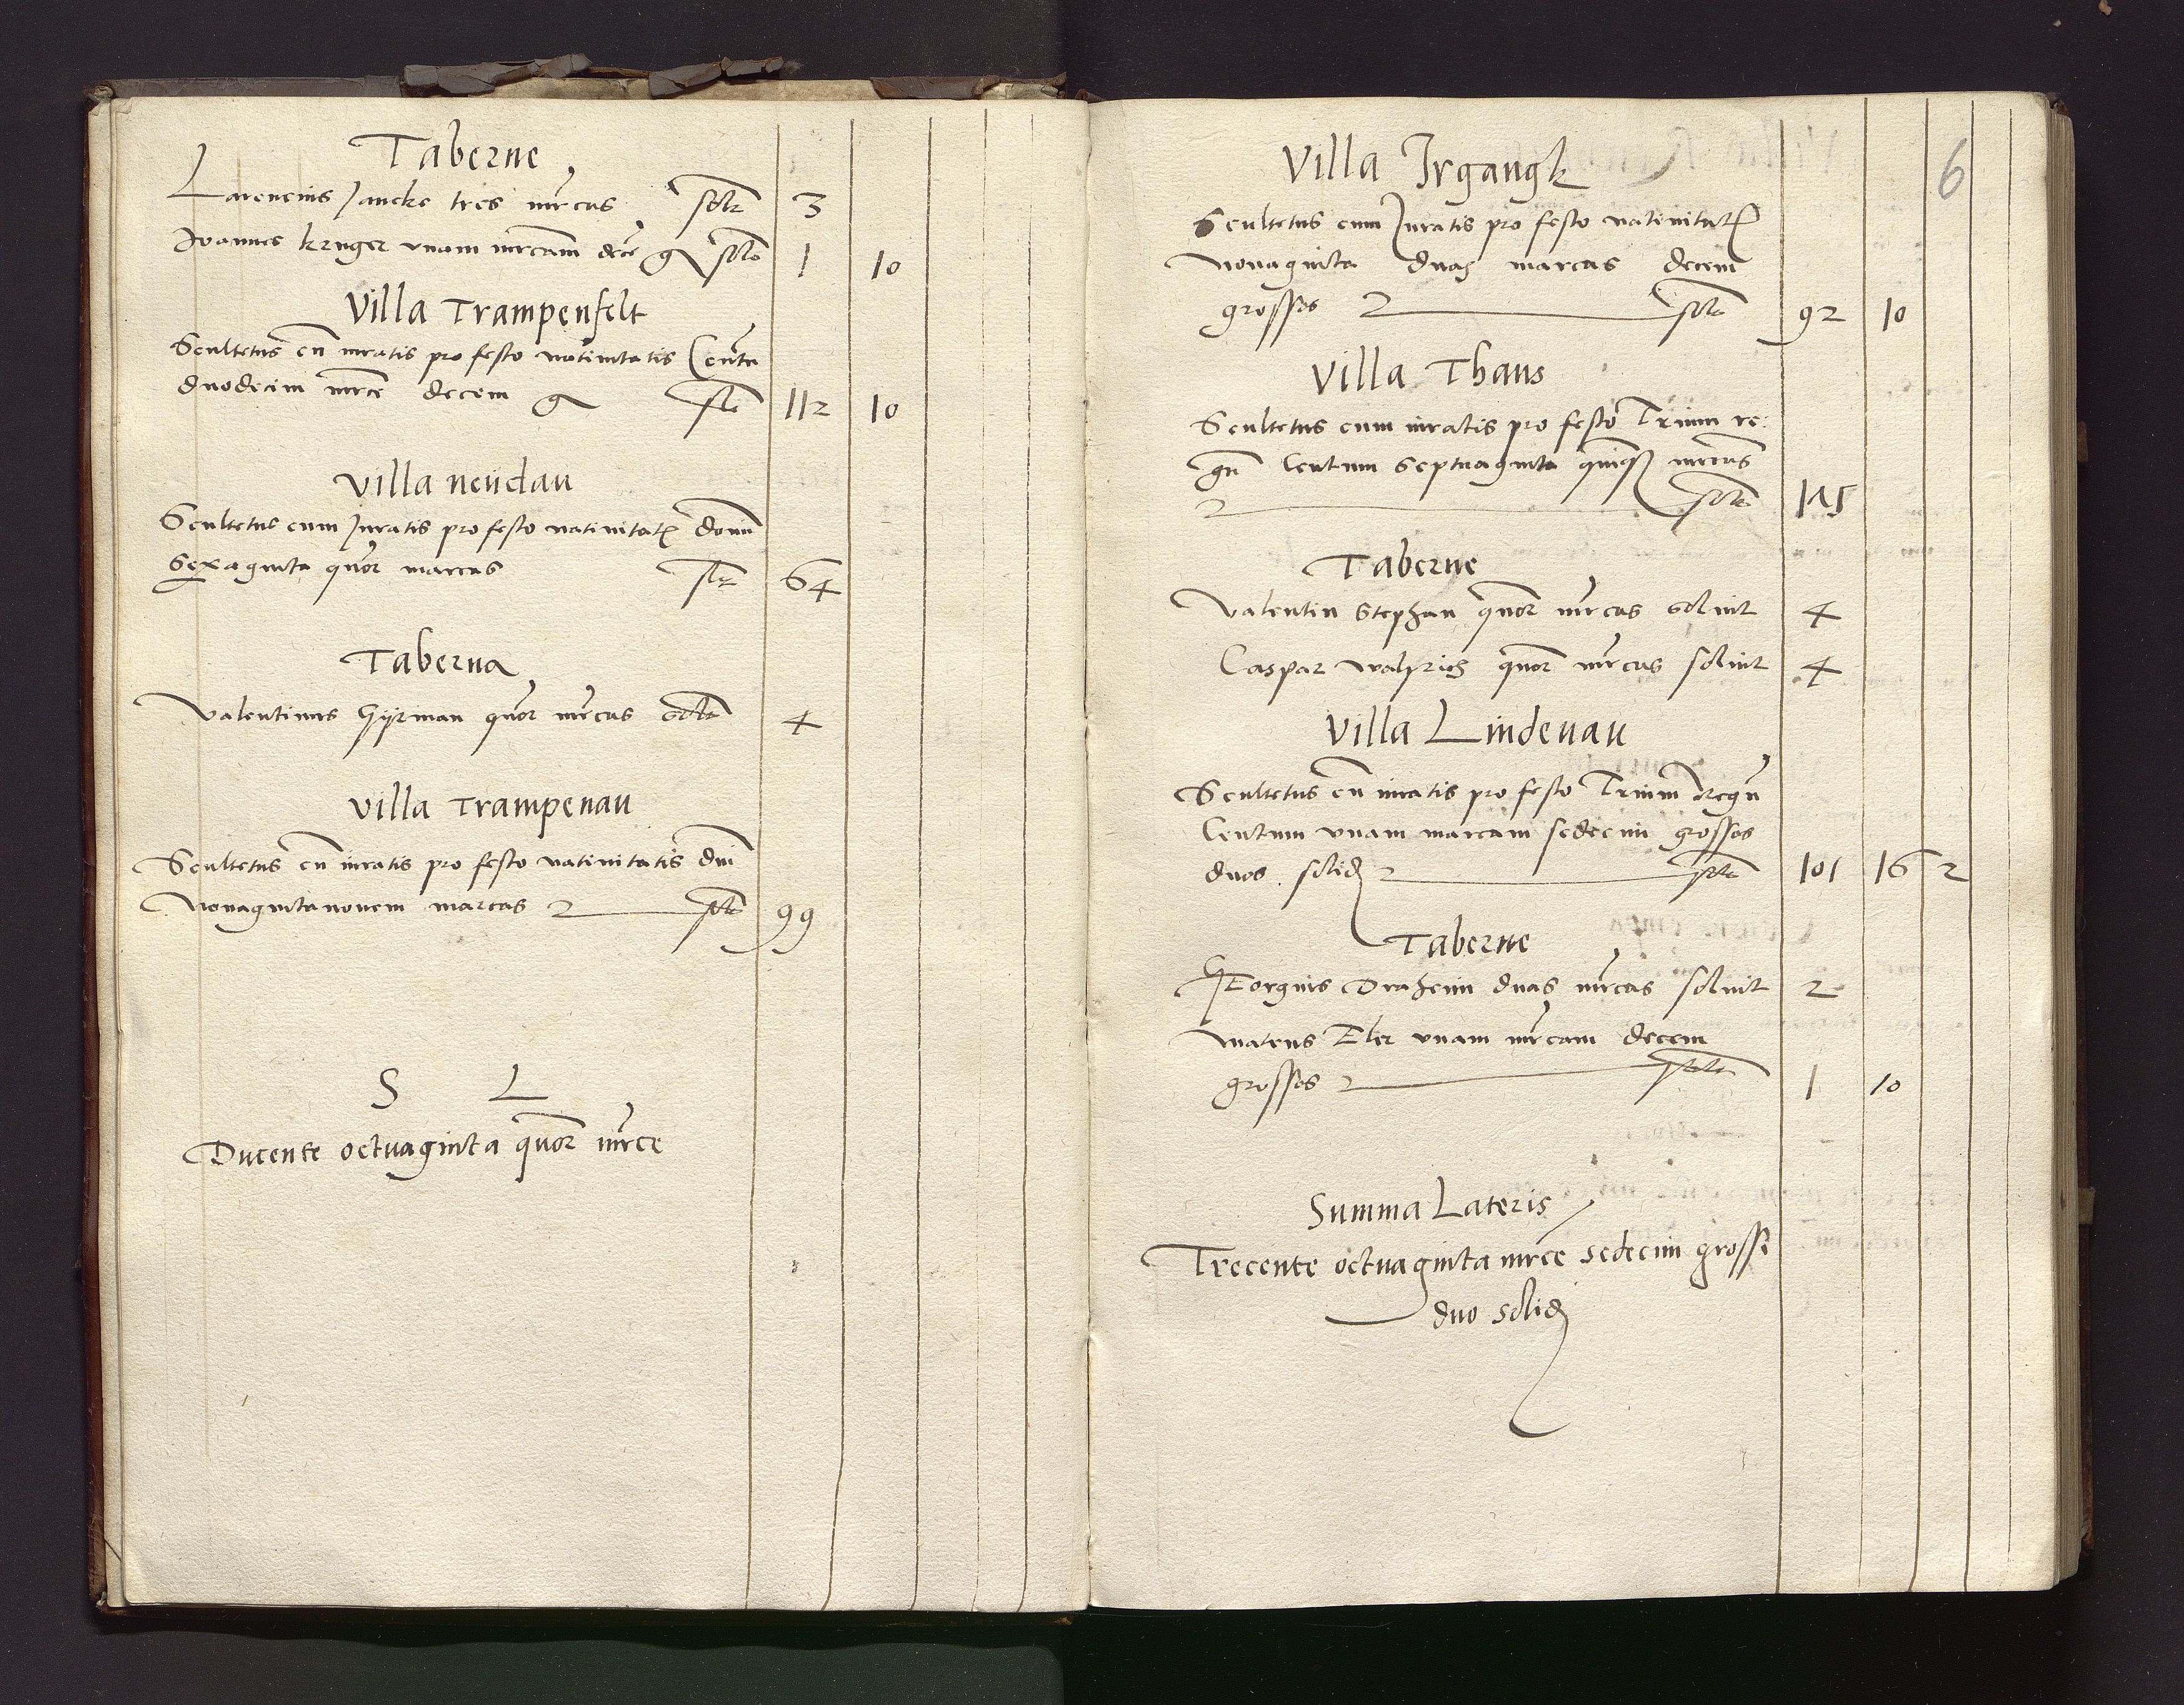 Taberne
Larencius Jancke tres mrcas solt 3
Joannes kruger vnam mrcam dece g solt 1 10
Villa Trampenfelt
Scultetus cu iuratis pro festo natiuitatis Centu
duodecim mrce decem g solt 112 10
Villa neudau
Scultetus cum Juratis pro festo natiuitat domi
Sexaginta quor marcas solt 64
Taberna
Valentinus Hyrman quor mrcas solt 4
Villa Trampenau
Scultetus cu iuratis pro festo natiuitatis dni
Nonaginta nouem marcas solt 99
S L
Ducente octuaginta quor mrce
6
Villa Jrgangk
Scultetus cum Juratis pro festo natiuitat
Nonaginta duas marcas decem
grossos solt 92 10
Villa Thans
Scultetus cum iuratis pro festo Trium re:
gu Centum septuaginta quinq mrcas
solt 175
Taberne
Valentin Stephan quor mrcas soluit 4
Caspar quor mrcas soluit 4
Villa Lindenau
Scultetus cu iuratis pro festo Trium Regu
Centum vnam marcam sedecim grossos
duos solid solt 101 16 2
Taberne
GEorgius Draheim duas mrcas soluit 2
Mateus Eler vnam mrcam decem
grossos solt 1 10
Summa Lateris
Trecente octuaginta mrce sedecim grossi
duo solid